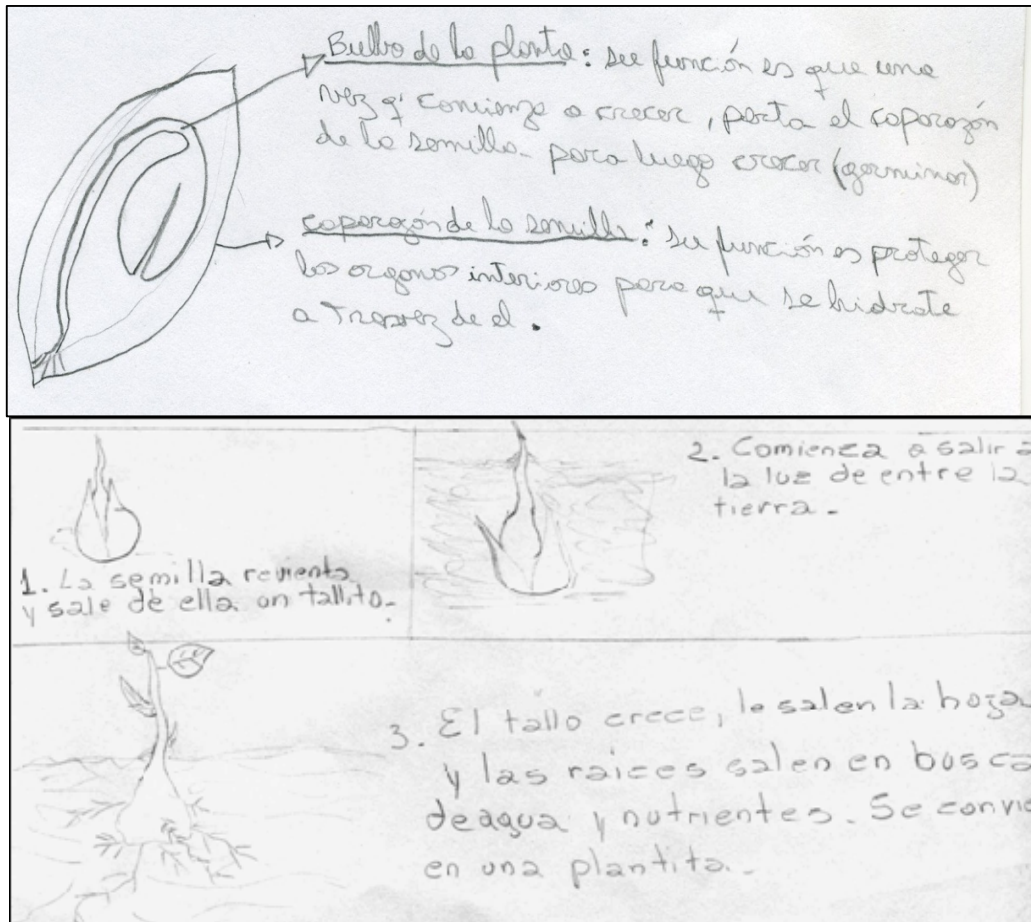 Bulbo de la planta: su función es que una
vez q' comienza a crecer, parta el caparazón
de la semilla para luego crecer (germinar)
caparazón de la semilla: su función es proteger
los organos interiores para que se hidrate
a travez de el.
1. La semilla revienta
y sale de ella un tallito.
2. Comienza a salir a
la luz de entre la
tierra.
3. El tallo crece, le salen la hoja
y las raices salen en busca
de agua y nutrientes. Se convie
en una plantita.